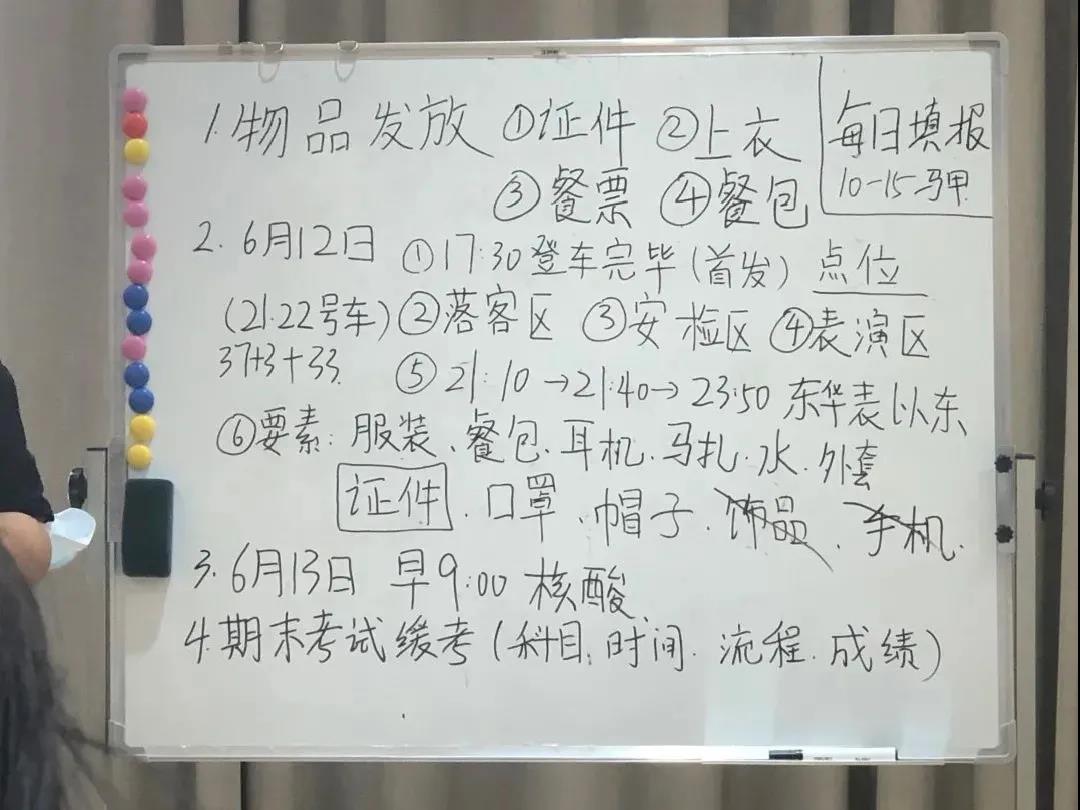 1.物品发放 ①证件 ②上衣
③餐票 ④餐包
每日填报
10-15马甲
2. 6月12日 ①17:30登车完毕(首发) 点位
(21.22号车) ②落客区 ③安检区 ④表演区
37+3+33. ⑤21:10→21:40→23:50 东华表以东
⑥要素: 服装、餐包、耳机、马扎、水、外套
证件、口罩、帽子、饰品、手机.
3. 6月13日 早9:00 核酸.
4.期末考试缓考(科目.时间.流程.成绩)